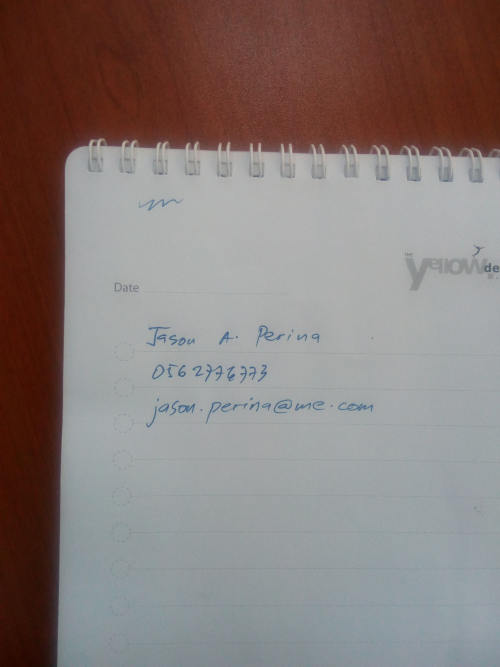 yellow de
Date
Jason A. Perina
0562776773
jason.perina@me.com